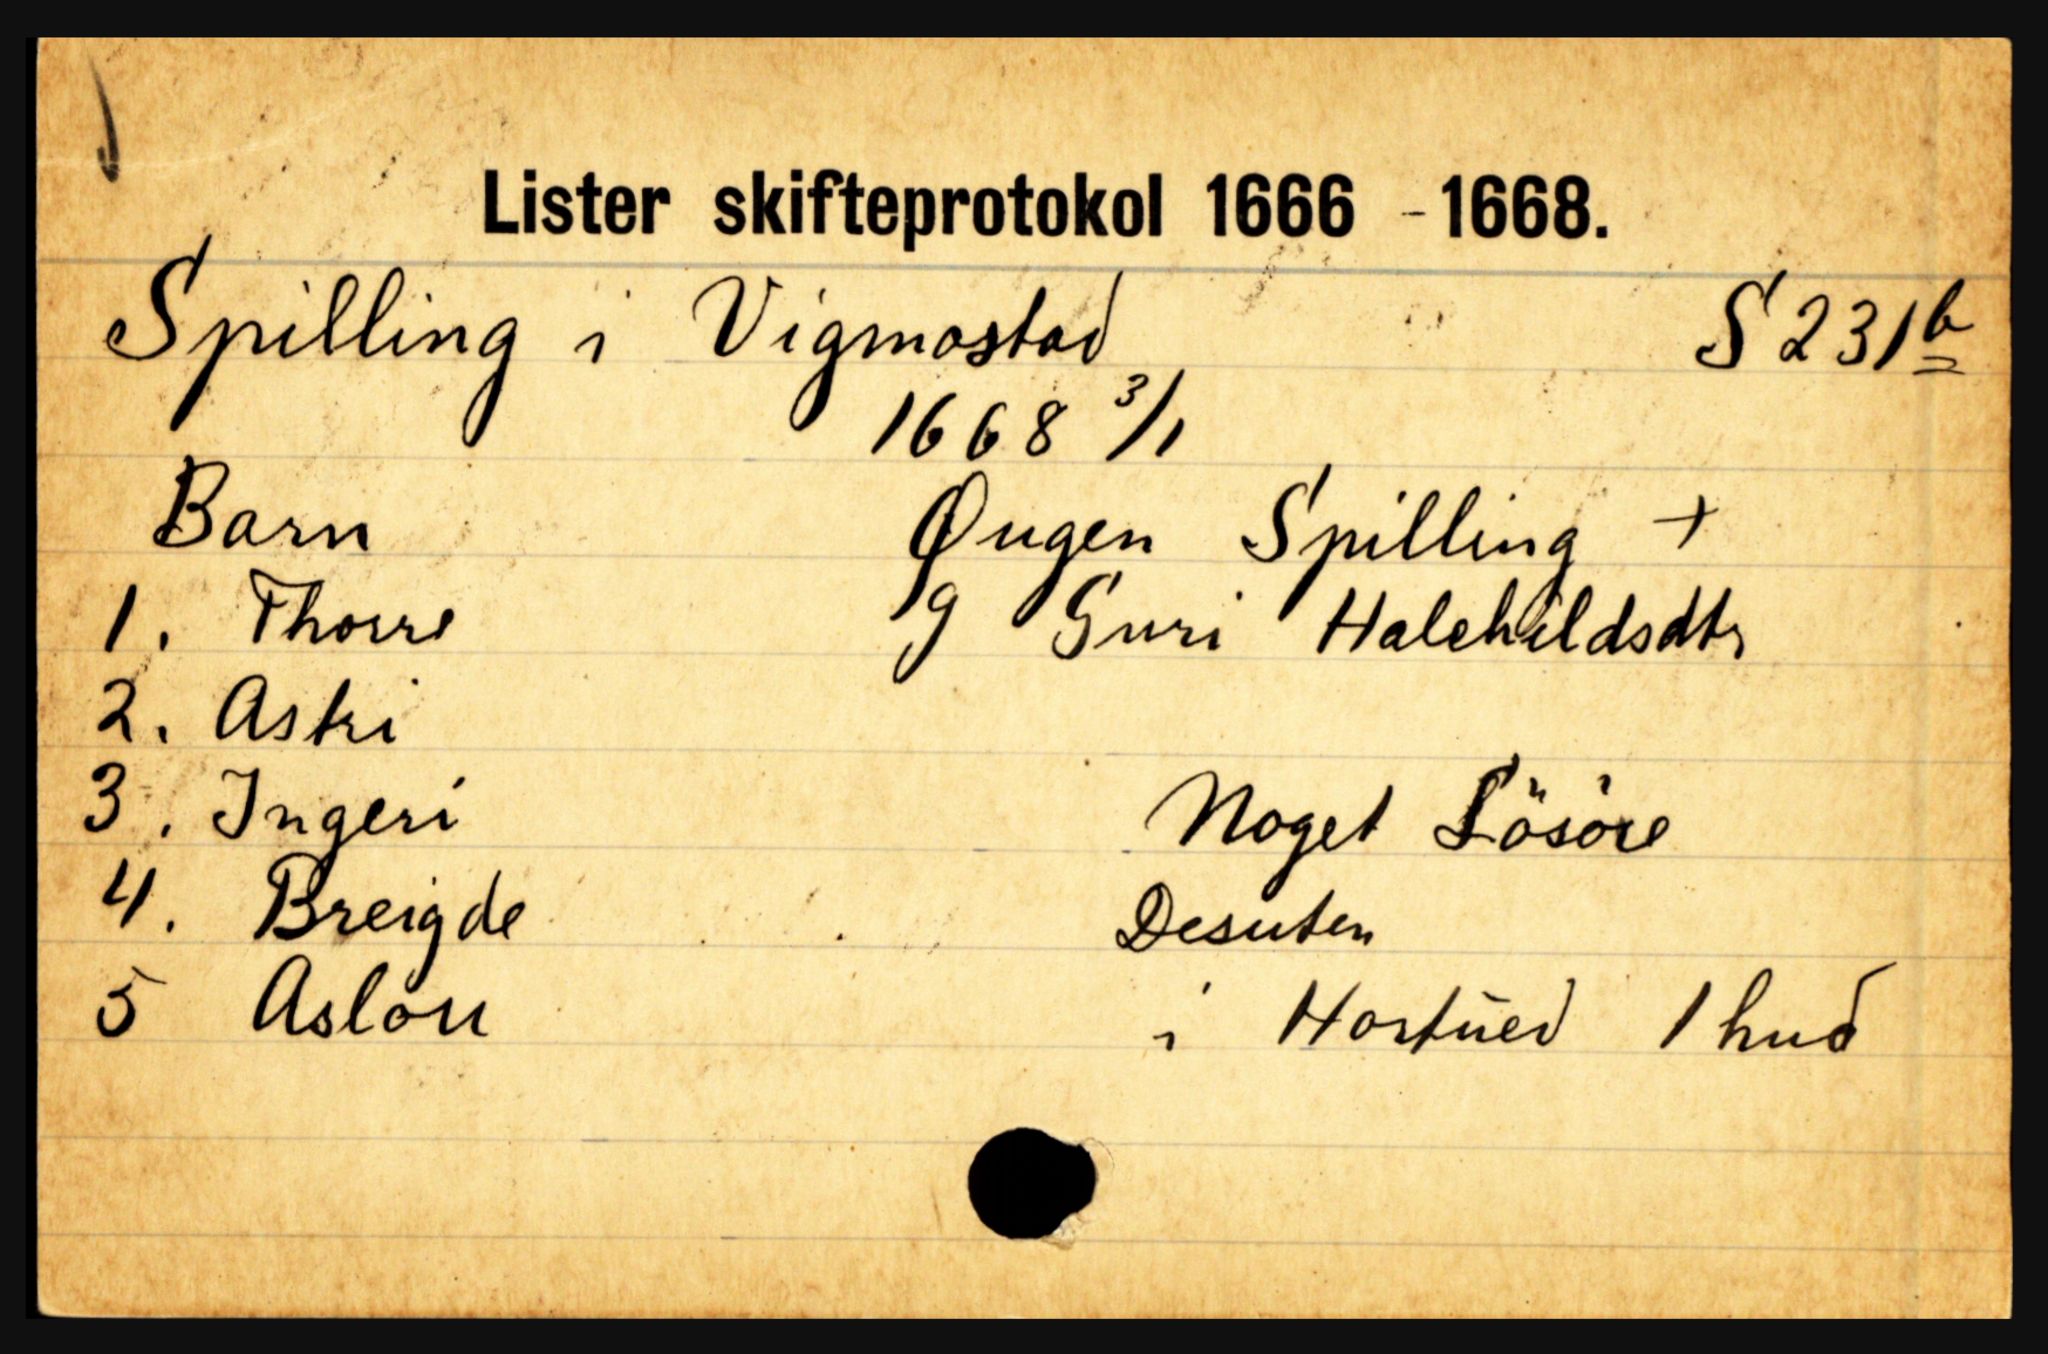 Lister skifteprotokol 1666 - 1668.
Spilling i Vigmostad S 231 b
1668 3/1
Barn Øugen Spilling +
1. Thorre g Guri Halchildsdtr
2. Astri
3. Ingeri Noget Lösöre
4. Breigde Desuten
5 Aslou i Hortued 1 hud